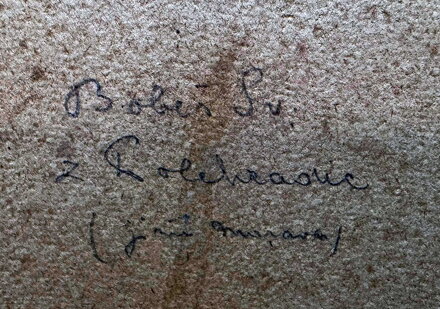 Bobeš Sv.
z Polehradic
(již. Morava)